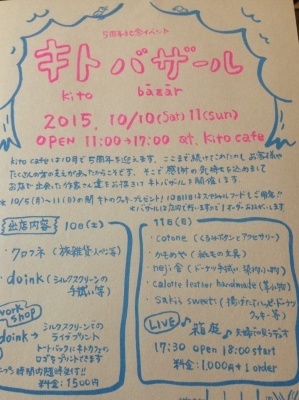 5周年記念イベント
キトバザール
kito bázár
2015. 10/10(Sat) 11(sun)
OPEN 11:00→17:00 at. kito cafe
kito cafeは10月で5周年を迎えます。ここまで続けてこれたのもお客様や
たくさんの方の支えがあったからこそです。そこで感謝の気持ちを込めまして
お店で出会った作家さん達をお招きし キトバザールを開催します。
出店内容
10日(土)
・クロフネ(旅雑貨
・doink(シルクスクリーンの
手拭い等)
work shop
doink→
シルクスクリーンでの
ライブプリント
トートバックにキトカフェの
ロゴをプリントできます
時間内随時受付!!
料金:1500円
11日(日)
・cotone(くるみボタンとアクセサリー)
・かものや(紙もの文具)
・neji舎(ドーナツ手拭い
・calorie lester handmade(革小物)
・sakii sweets(揚げたてハッピードーナツ
クッキー等)
LIVE♪
箱庭
17:30 open 18:00 start
料金:1,000円+1 order